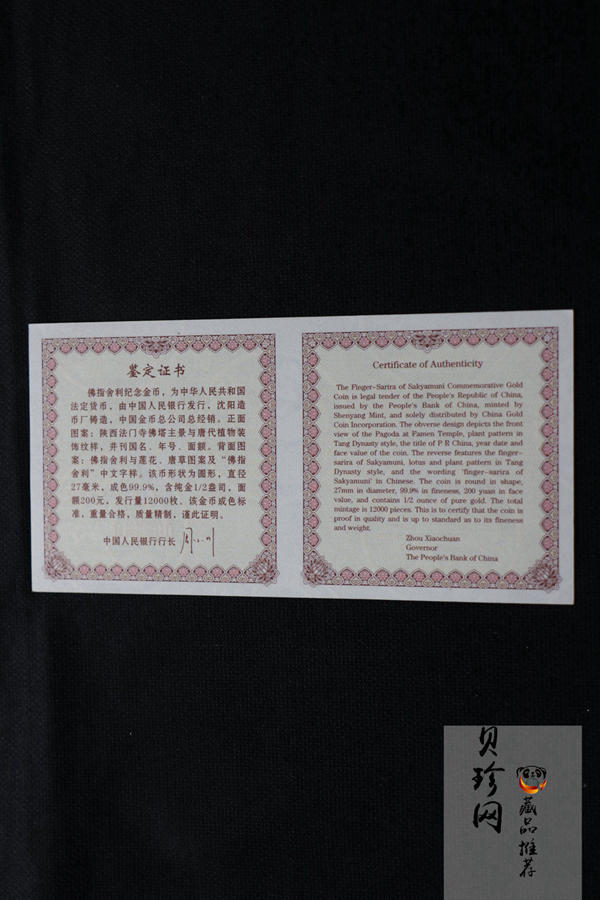 鉴定证书
佛指舍利纪念金币，为中华人民共和国
法定货币，由中国人民银行发行，沈阳造
币厂铸造，中国金币总公司总经销。正面
图案：陕西法门寺佛塔主景与唐代植物装
饰纹样，并刊国名、年号、面额。背面图
案：佛指舍利与莲花、唐草图案及“佛指
舍利”中文字样。该币形状为圆形，直径
27毫米，成色99.9%，含纯金1/2盎司，面
额200元，发行量12000枚。该金币成色标
准，重量合格，质量精制，谨此证明。
中国人民银行行长
Certificate of Authenticity
The Finger-Sarira of Sakyamuni Commemorative Gold
Coin is legal tender of the People's Republic of China,
issued by the People's Bank of China, minted by
Shenyang Mint, and solely distributed by China Gold
Coin Incorporation. The obverse design depicts the front
view of the Pagoda at Famen Temple, plant pattern in
Tang Dynasty style, the title of P R China, year date and
face value of the coin. The reverse features the finger-
sarira of Sakyamuni, lotus and plant pattern in Tang
Dynasty style, and the wording 'finger-sarira of
Sakyamuni' in Chinese. The coin is round in shape,
27mm in diameter, 99.9% in fineness, 200 yuan in face
value, and contains 1/2 ounce of pure gold. The total
mintage is 12000 pieces. This is to certify that the coin is
proof in quality and is up to standard as to its fineness
and weight.
Zhou Xiaochuan
Governor
The People's Bank of China
贝珍网
藏品推荐